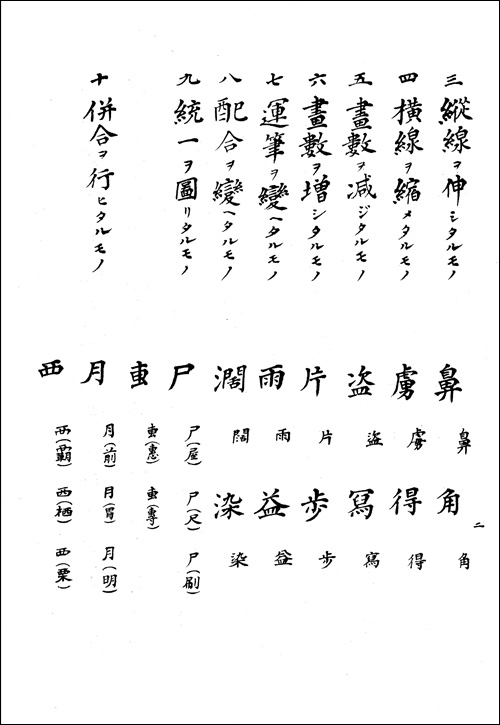 三 縱線ヲ伸シタルモノ 鼻 鼻 角 角
四 橫線ヲ縮メタルモノ 虜 虜 得 得
五 畫數ヲ減ジタルモノ 盜 盗 寫 寫
六 畫數ヲ增シタルモノ 片 片 步 歩
七 運筆ヲ變ヘタルモノ 雨 雨 益 益
八 配合ヲ變ヘタルモノ 濶 闊 染 染
九 統一ヲ圖リタルモノ 尸 尸(屋) 尸(尺) 尸(刷)
叀 叀(惠) 叀(專)
十 併合ヲ行ヒタルモノ 月 月(前) 月(胃) 月(明)
覀 覀(覇) 西(栖) 覀(栗)
二